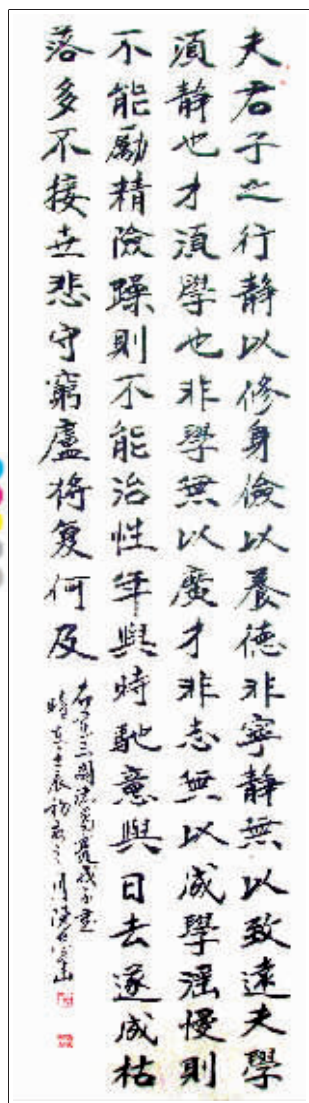 夫君子之行静以修身儉以養德非寧静無以致遠夫學
湏静也才湏學也非學無以廣才非志無以成學滛慢則
不能勵精險躁則不能治性年與時馳意與日去遂成枯
落多不接世悲守窮廬將复何及
三國諸葛亮戒子書
時在壬辰初夏之月